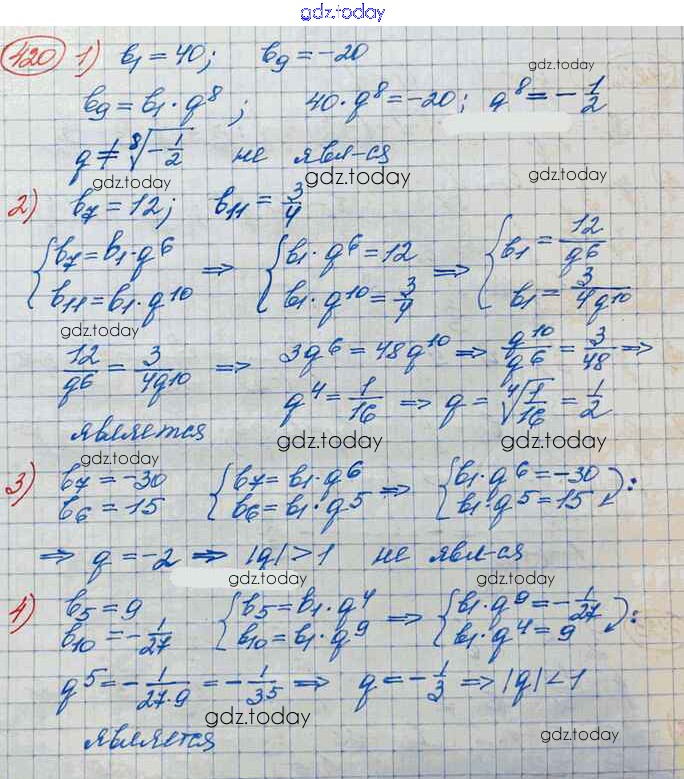 gdz.today
420 1) b₁ = 40; b₉ = -20
gdz.today
b₉ = b₁ · q⁸; 40 · q⁸ = -20; q⁸ = -1/2
q ≠ ⁸√(-1/2) не явл-ся
gdz.today gdz.today gdz.today
2) b₇ = 12; b₁₁ = 3/4
{b₇ = b₁ · q⁶ ⇒ {b₁ · q⁶ = 12 ⇒ {b₁ = 12/q⁶
b₁₁ = b₁ · q¹⁰ b₁ · q¹⁰ = 3/4 b₁ = 3/4q¹⁰
gdz.today
12/q⁶ = 3/4q¹⁰ ⇒ 3q⁶ = 48q¹⁰ ⇒ q¹⁰/q⁶ = 3/48 ⇒
q⁴ = 1/16 ⇒ q = ⁴√(1/16) = 1/2
является
gdz.today gdz.today gdz.today
3) b₇ = -30 {b₇ = b₁ · q⁶ ⇒ {b₁ · q⁶ = -30
b₆ = 15 b₆ = b₁ · q⁵ b₁ · q⁵ = 15 :
⇒ q = -2 ⇒ |q| > 1 не явл-ся
gdz.today gdz.today
4) b₅ = 9 {b₅ = b₁ · q⁴ ⇒ {b₁ · q⁹ = -1/27
b₁₀ = -1/27 b₁₀ = b₁ · q⁹ b₁ · q⁴ = 9 :
q⁵ = -1/27·9 = -1/3⁵ ⇒ q = -1/3 ⇒ |q| < 1
gdz.today
является
gdz.today